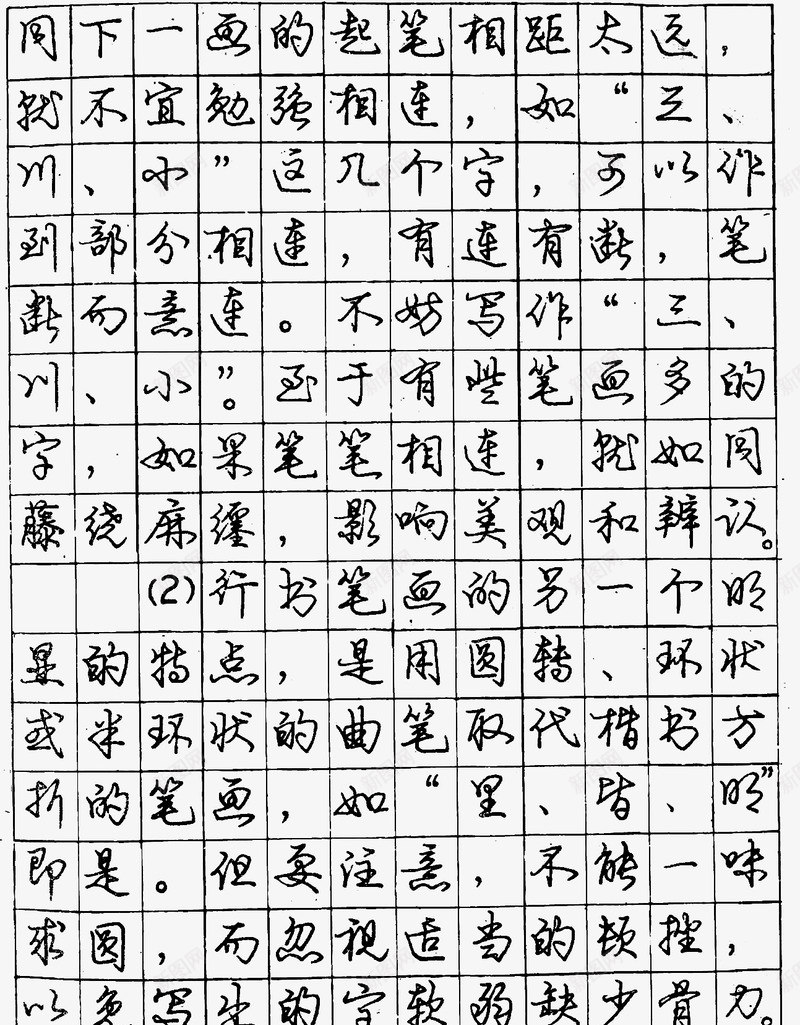 同下一画的起笔相距太远，
就不宜勉强相连，如“三、
川、小”这几个字，可以作
到部分相连，有连有断，笔
断而意连。不妨写作“三、
川、小”。至于有些笔画多的
字，如果笔笔相连，就如同
藤绕麻缠，影响美观和辨认。
(2)行书笔画的另一个明
显的特点，是用圆转、环状
或半环状的曲笔取代楷书方
折的笔画，如“里、皆、明”
即是。但要注意，不能一味
求圆，而忽视适当的顿挫，
以免写出的字软弱缺少骨力。